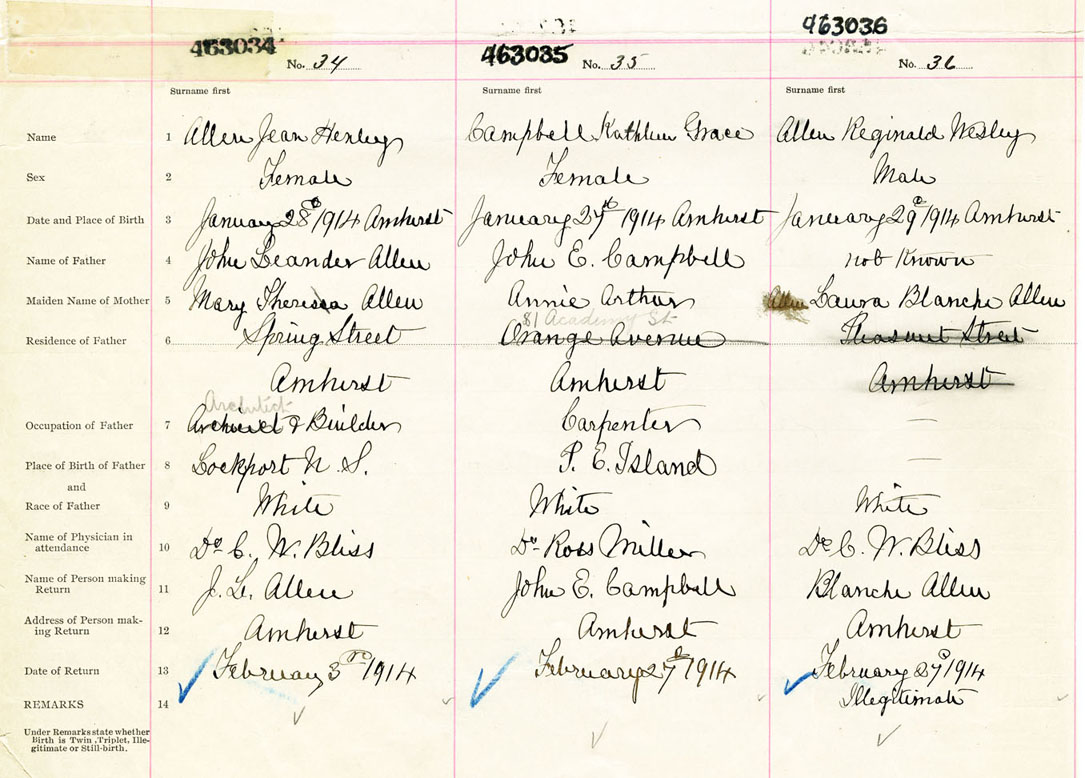 463034 463035 463036
No. 34 No. 35 No. 36
Surname first Surname first Surname first
Name 1 Allen Jean Henley Campbell Kathleen Grace Allen Reginald Wesley
Sex 2 Female Female Male
Date and Place of Birth 3 January 28th 1914 Amherst January 27th 1914 Amherst January 29th 1914 Amherst
Name of Father 4 John Leander Allen John E. Campbell not Known
Maiden Name of Mother 5 Mary Theresa Allen Annie Arthur Allen Laura Blanche Allen
81 Academy St
Residence of Father 6 Spring Street Orange Avenue Pleasant Street
Amherst Amherst Amherst
Architect
Occupation of Father 7 & Builder Carpenter —
Place of Birth of Father 8 Lockport N. S. P. E. Island —
and
Race of Father 9 White White White
Name of Physician in
attendance 10 Dr C. W. Bliss Dr Ross Miller Dr C. W. Bliss
Name of Person making
Return 11 J. L. Allen John E. Campbell Blanche Allen
Address of Person mak-
ing Return 12 Amherst Amherst Amherst
Date of Return 13 February 3rd 1914 February 27th 1914 February 27th 1914
REMARKS 14 Illegitimate
Under Remarks state whether
Birth is Twin, Triplet, Ille-
gitimate or Still-birth.